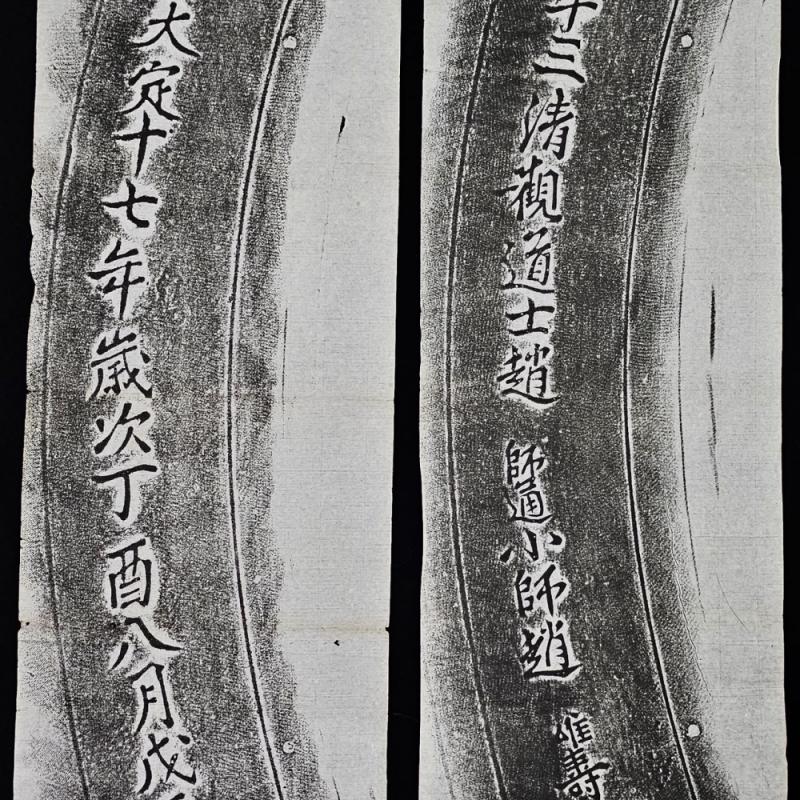 大定十七年歲次丁酉八月戊
三清觀道士趙師通小師趙壽